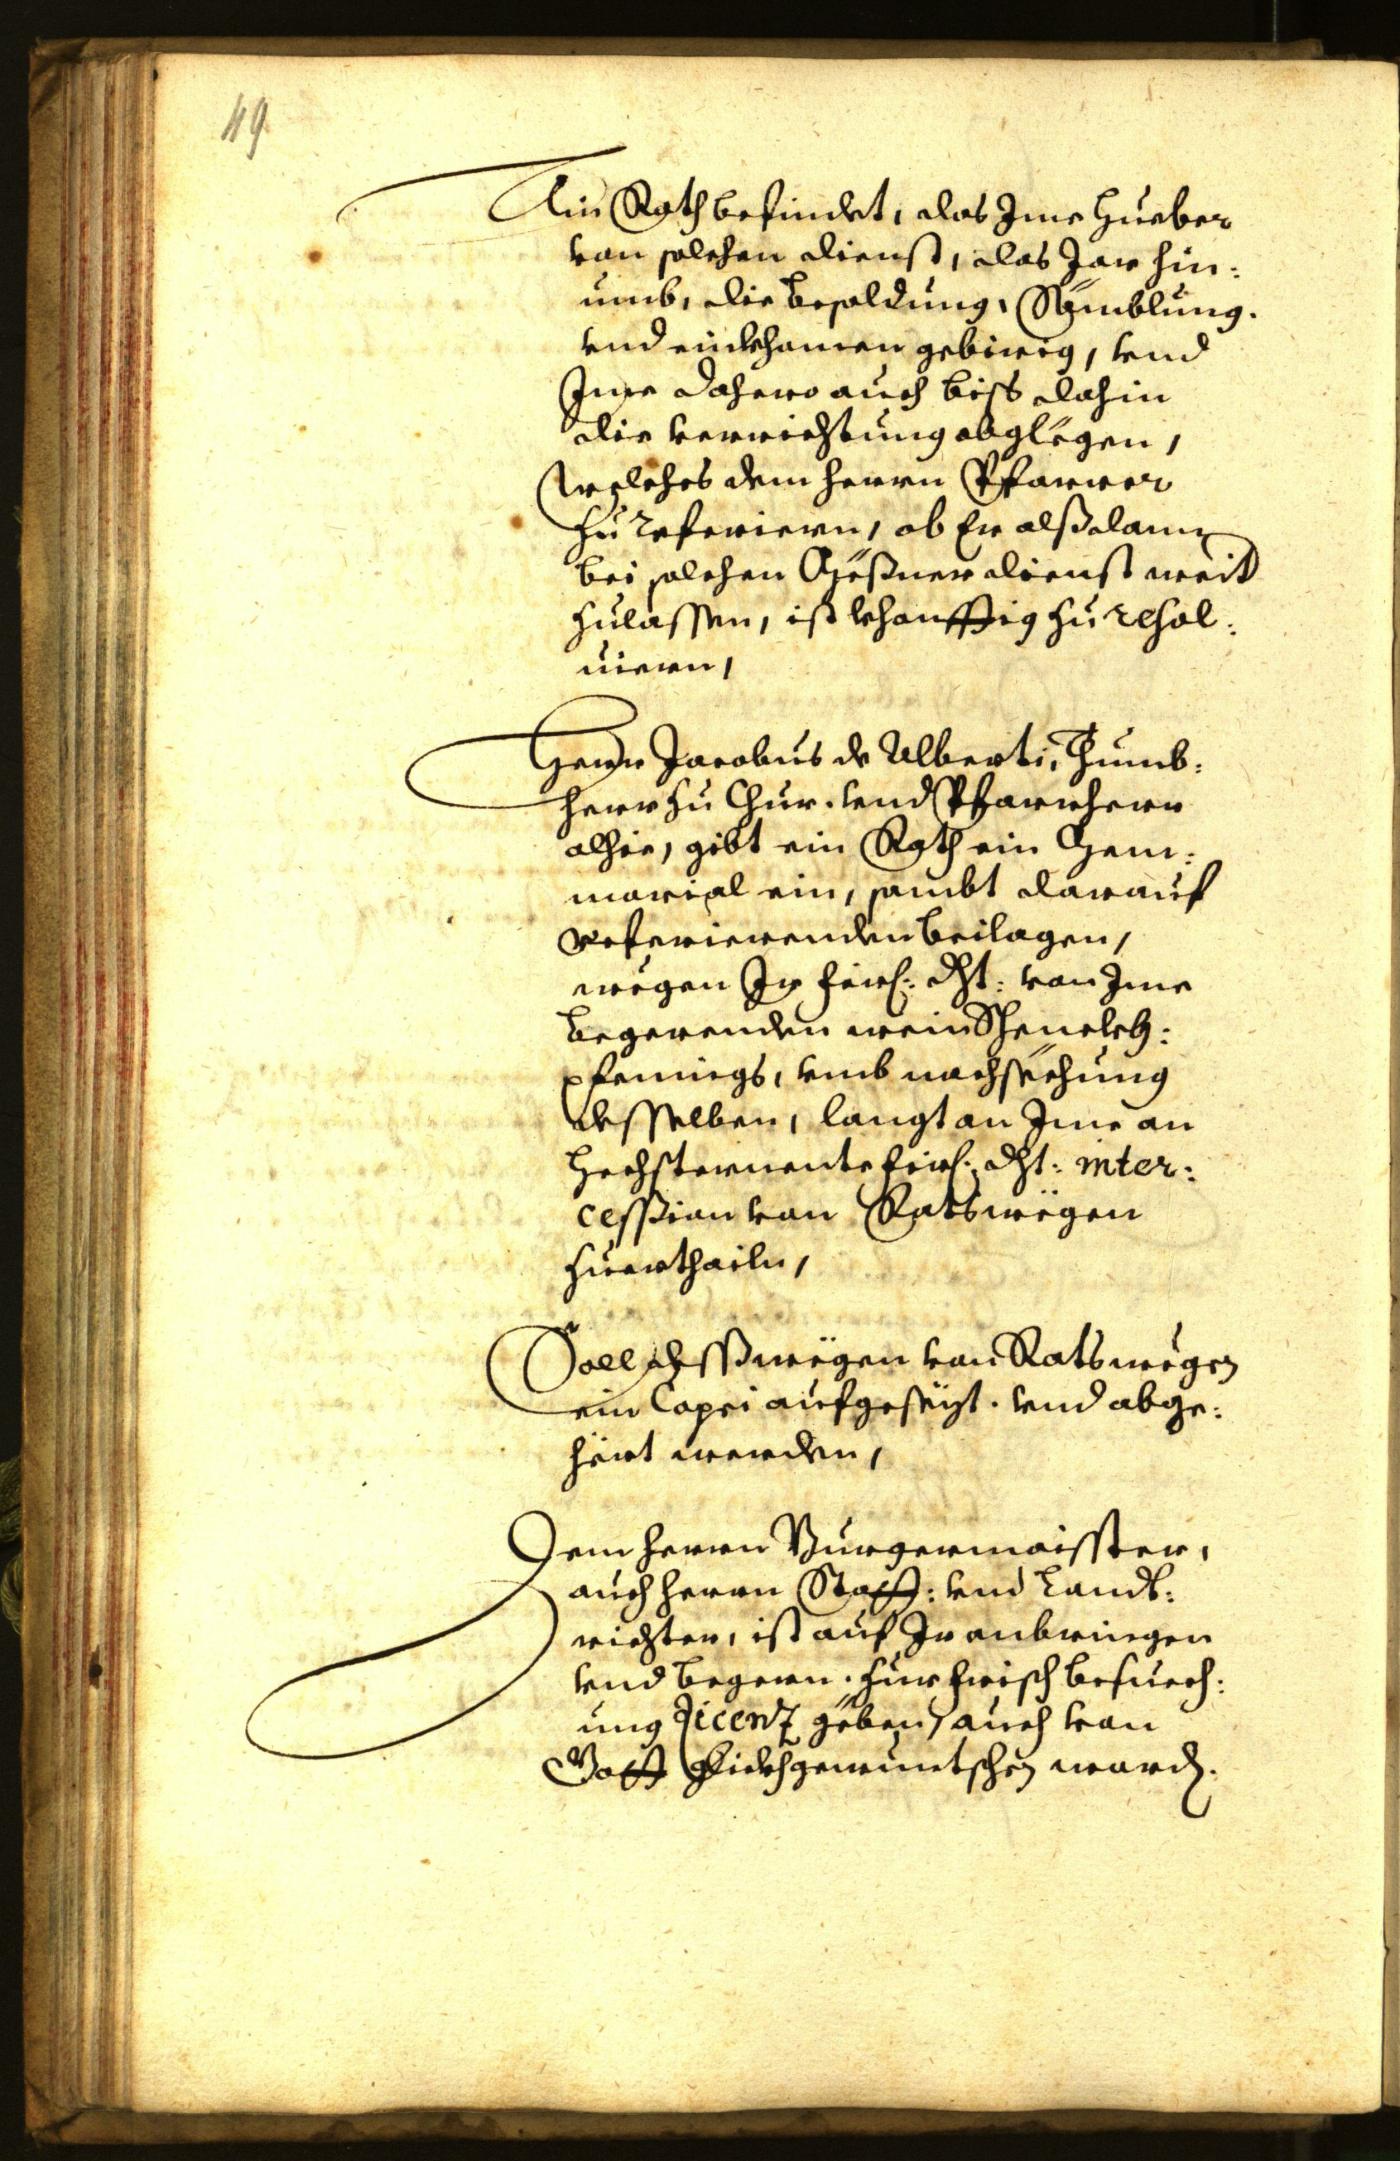 49
Ain Rath befindet, das Ime Hueber
von solchen dienst, das Jar hin:
umb, die besoldung, Samblung.
vnd einkhomen gebirig, vnd
Ime dahero auch biss dahin
die verrichtung obglegen,
welches dem herrn Pfarrer
zu referiern, ob Er alßdann
bei solchen Meßner dienst weit
zulassen, ist khonfftig zu resol:
uiern,
Herr Jacobus de Alberti, Thumb:
herr zu Chur. vnd Pfarrherr
alhie, gibt ein Rath ein Mem:
morial ein, sambt darauf
referierenden beilagen,
wegen Ir firsl: dht: von Ime
begerenden wein Schenckh:
pfenings, vmb nachsechung
desselben, langt an Ime an
Hechsternente firsl: dht: inter:
cession von Rats wegen
zuerthailn,
Soll desßwegen von Rats wegen
ein Copei aufgesezt. vnd abge:
hert werden,
Dem herrn Burgermaisster,
auch herrn Statt: vnd Landt:
richter, ist auf Ir anbringen
vnd begern. zur frisch besuech:
ung licenz geben, auch von
Gott glickh gewuntschen word.